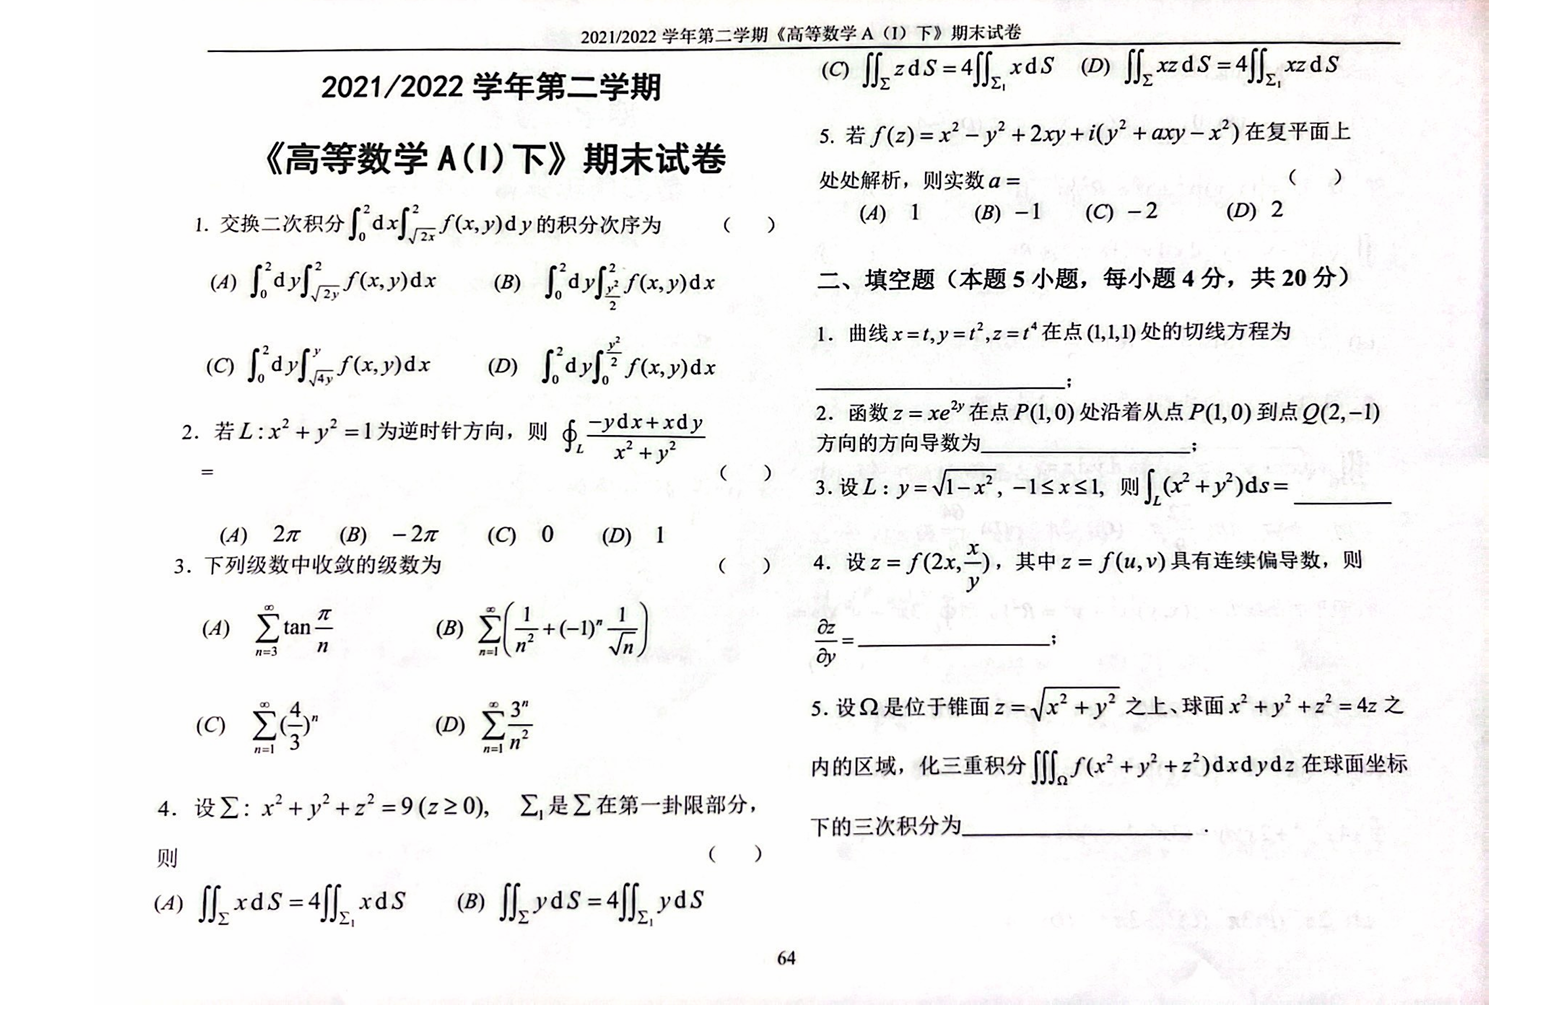 2021/2022 学年第二学期《高等数学 A（I）下》期末试卷
2021/2022 学年第二学期
《高等数学 A(I)下》期末试卷
1. 交换二次积分 $\int_0^2 dx\int_{\sqrt{2x}}^2 f(x,y)dy$ 的积分次序为 （ ）
(A) $\int_0^2 dy\int_{\sqrt{2y}}^2 f(x,y)dx$ (B) $\int_0^2 dy\int_{\frac{y^2}{2}}^2 f(x,y)dx$
(C) $\int_0^2 dy\int_{\sqrt{4y}}^y f(x,y)dx$ (D) $\int_0^2 dy\int_0^{\frac{y^2}{2}} f(x,y)dx$
2. 若 $L: x^2+y^2=1$ 为逆时针方向，则 $\oint_L \frac{-ydx+xdy}{x^2+y^2}$
= （ ）
(A) $2\pi$ (B) $-2\pi$ (C) 0 (D) 1
3. 下列级数中收敛的级数为 （ ）
(A) $\sum_{n=3}^{\infty}\tan\frac{\pi}{n}$ (B) $\sum_{n=1}^{\infty}\left(\frac{1}{n^2}+(-1)^n\frac{1}{\sqrt{n}}\right)$
(C) $\sum_{n=1}^{\infty}(\frac{4}{3})^n$ (D) $\sum_{n=1}^{\infty}\frac{3^n}{n^2}$
4. 设 $\Sigma: x^2+y^2+z^2=9(z\geq 0)$, $\Sigma_1$ 是 $\Sigma$ 在第一卦限部分，
则 （ ）
(A) $\iint_{\Sigma} xdS=4\iint_{\Sigma_1} xdS$ (B) $\iint_{\Sigma} ydS=4\iint_{\Sigma_1} ydS$
(C) $\iint_{\Sigma} zdS=4\iint_{\Sigma_1} xdS$ (D) $\iint_{\Sigma} xzdS=4\iint_{\Sigma_1} xzdS$
5. 若 $f(z)=x^2-y^2+2xy+i(y^2+axy-x^2)$ 在复平面上
处处解析，则实数 $a=$ （ ）
(A) 1 (B) −1 (C) −2 (D) 2
二、填空题（本题 5 小题，每小题 4 分，共 20 分）
1. 曲线 $x=t,y=t^2,z=t^4$ 在点 (1,1,1) 处的切线方程为
____________;
2. 函数 $z=xe^{2y}$ 在点 $P(1,0)$ 处沿着从点 $P(1,0)$ 到点 $Q(2,-1)$
方向的方向导数为____________;
3. 设 $L: y=\sqrt{1-x^2}, -1\leq x\leq 1,$ 则 $\int_L (x^2+y^2)ds=$ ________
4. 设 $z=f(2x,\frac{x}{y})$，其中 $z=f(u,v)$ 具有连续偏导数，则
$\frac{\partial z}{\partial y}=$ ____________;
5. 设 $\Omega$ 是位于锥面 $z=\sqrt{x^2+y^2}$ 之上、球面 $x^2+y^2+z^2=4z$ 之
内的区域，化三重积分 $\iiint_{\Omega} f(x^2+y^2+z^2)dxdydz$ 在球面坐标
下的三次积分为____________ .
64